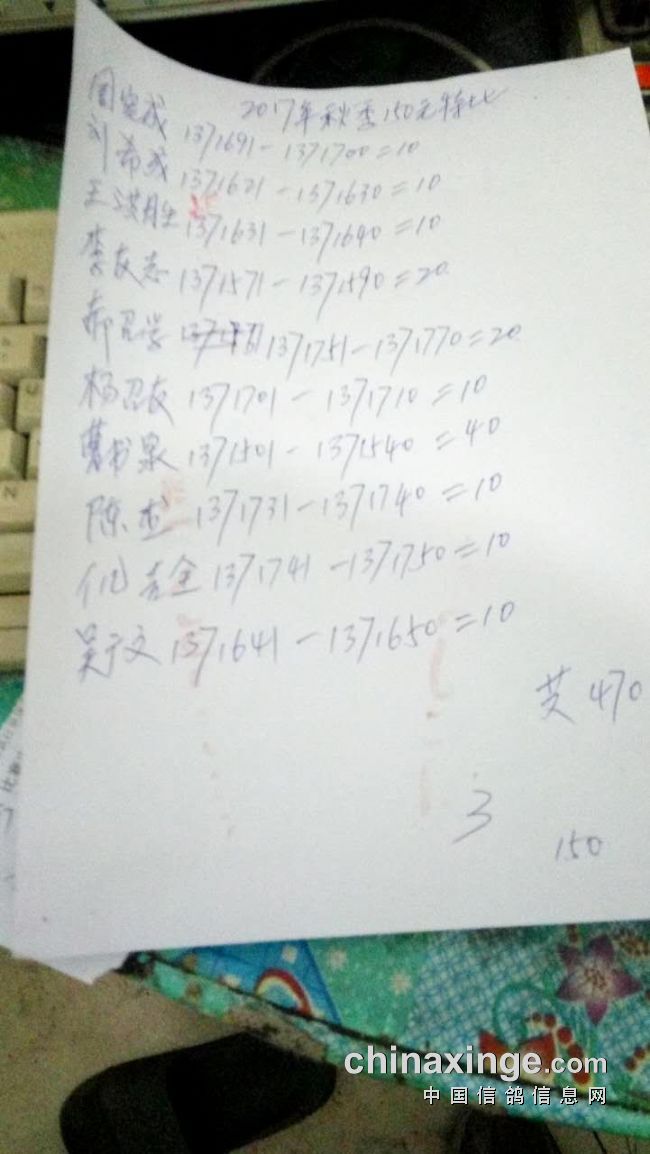 2017年秋季150元特比
周宝成 1371691-1371700=10
刘希成 1371621-1371630=10
王洪胜 1371631-1371640=10
李友志 1371571-1371590=20
郝召学 1371751-1371770=20
杨召友 1371701-1371710=10
曹书泉 1371501-1371540=40
陈杰 1371731-1371740=10
1371741-1371750=10
吴广文 1371641-1371650=10
共470
3
150
N
chinaxinge.com
中国信鸽信息网